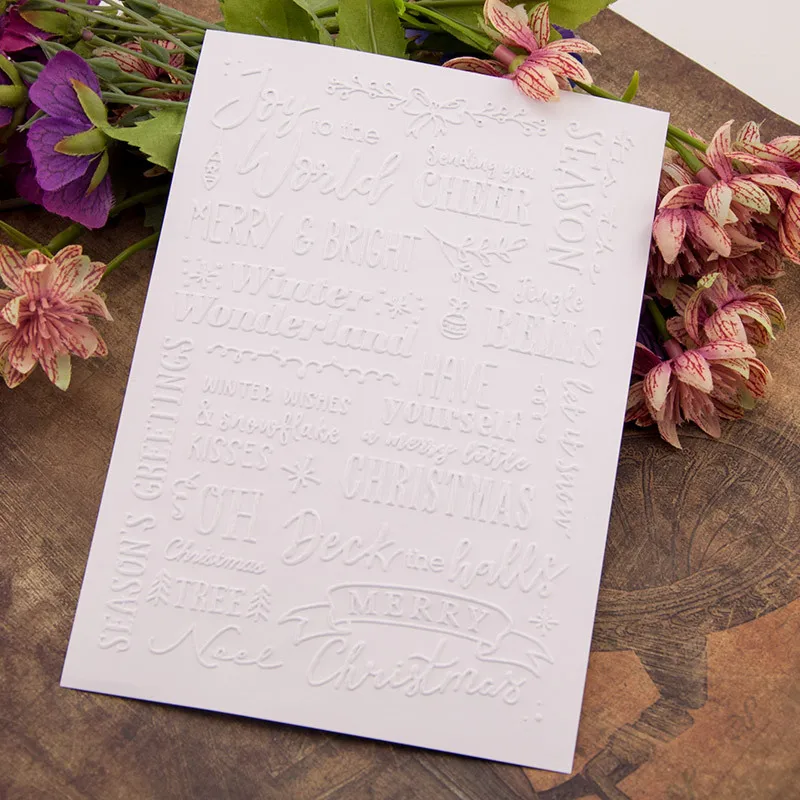 Joy
to the
World
Sending you
CHEER
'tis the
SEASON
MERRY & BRIGHT
Winter
Wonderland
Jingle
BELLS
HAVE
yourself
a merry little
CHRISTMAS
WINTER WISHES
& snowflake
KISSES
let it snow
SEASON'S GREETINGS
OH
Christmas
TREE
Deck the halls
Noel
MERRY
Christmas